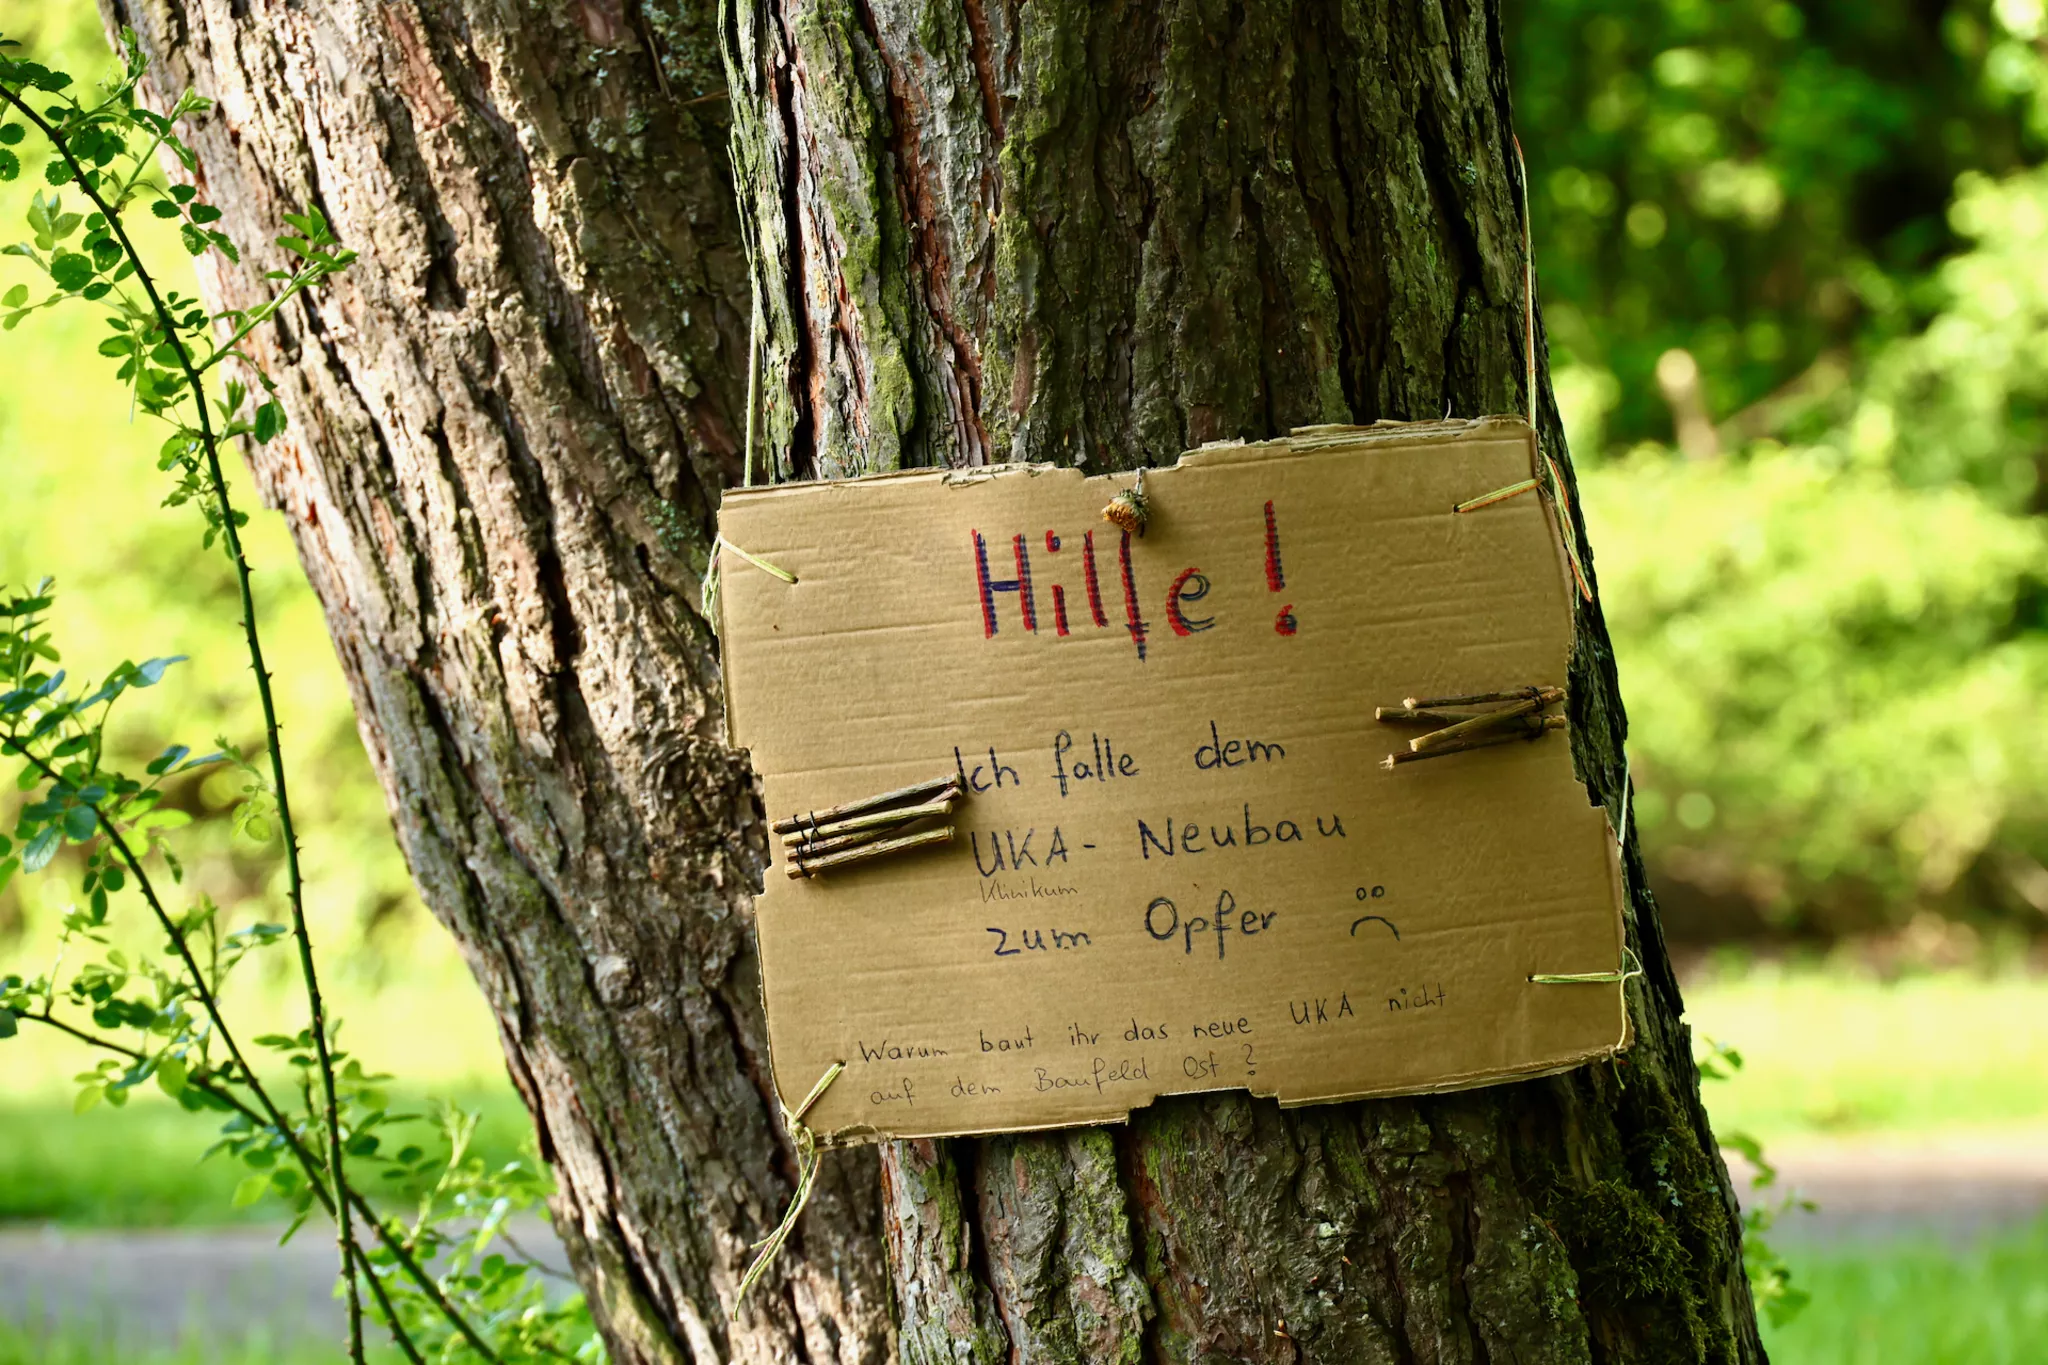 Hilfe!
Ich falle dem
UKA-Neubau
Klinikum
zum Opfer
Warum baut ihr das neue UKA nicht
auf dem Baufeld Ost?